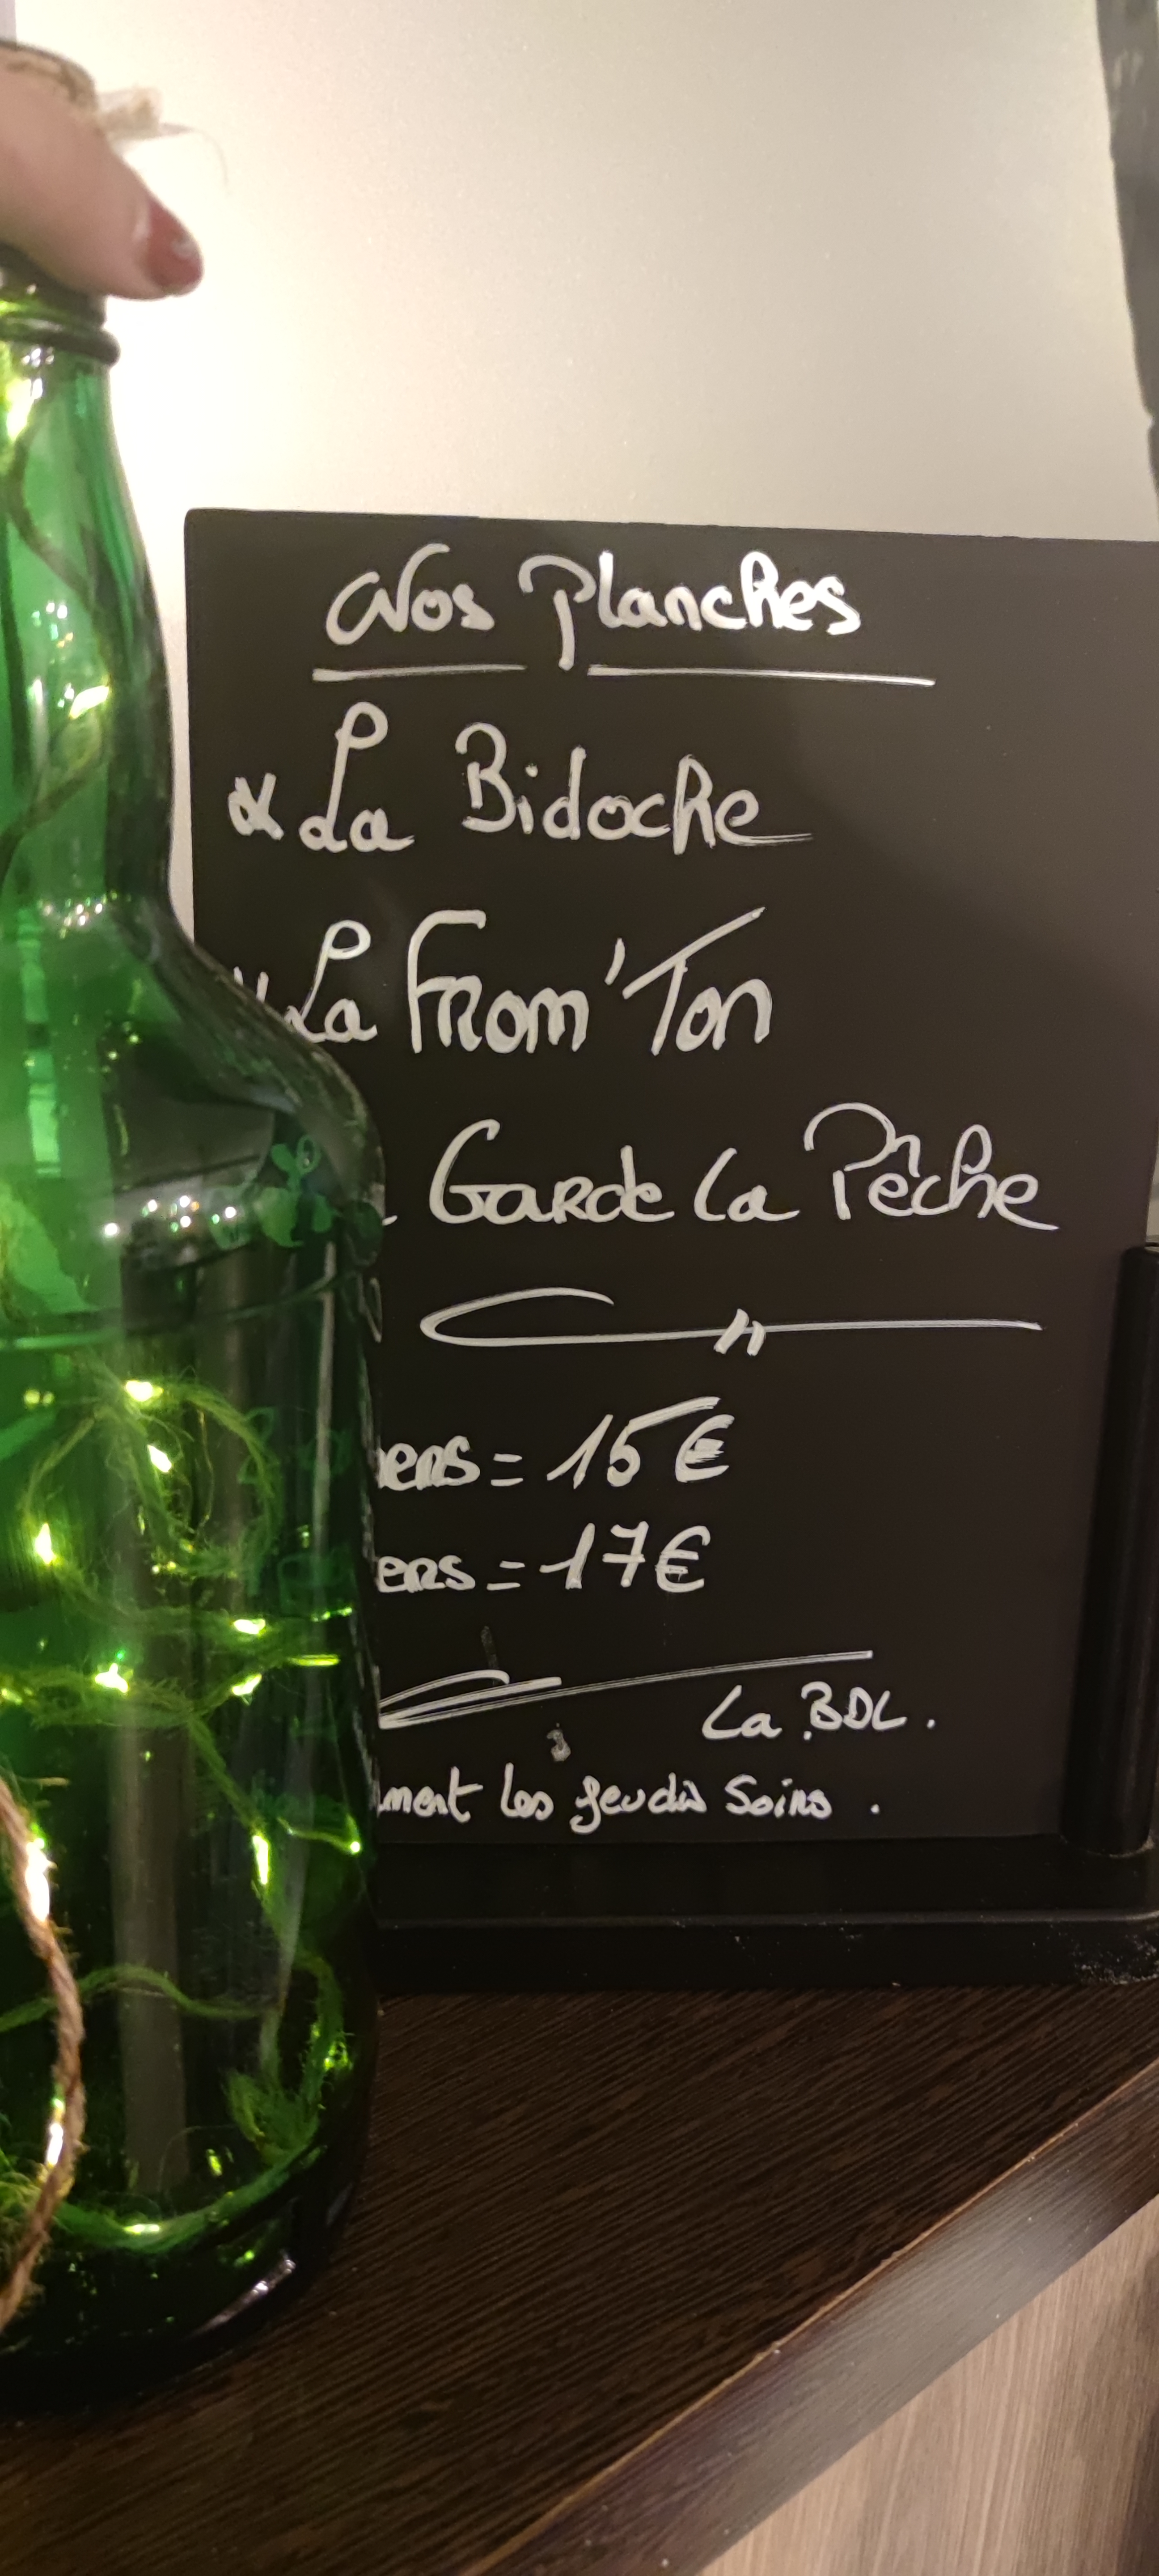 Nos Planches
* La Bidoche
La From'Ton
Garde la Pêche
ers = 15€
ers = 17€
La BDL.
ment les jeudis Soirs.